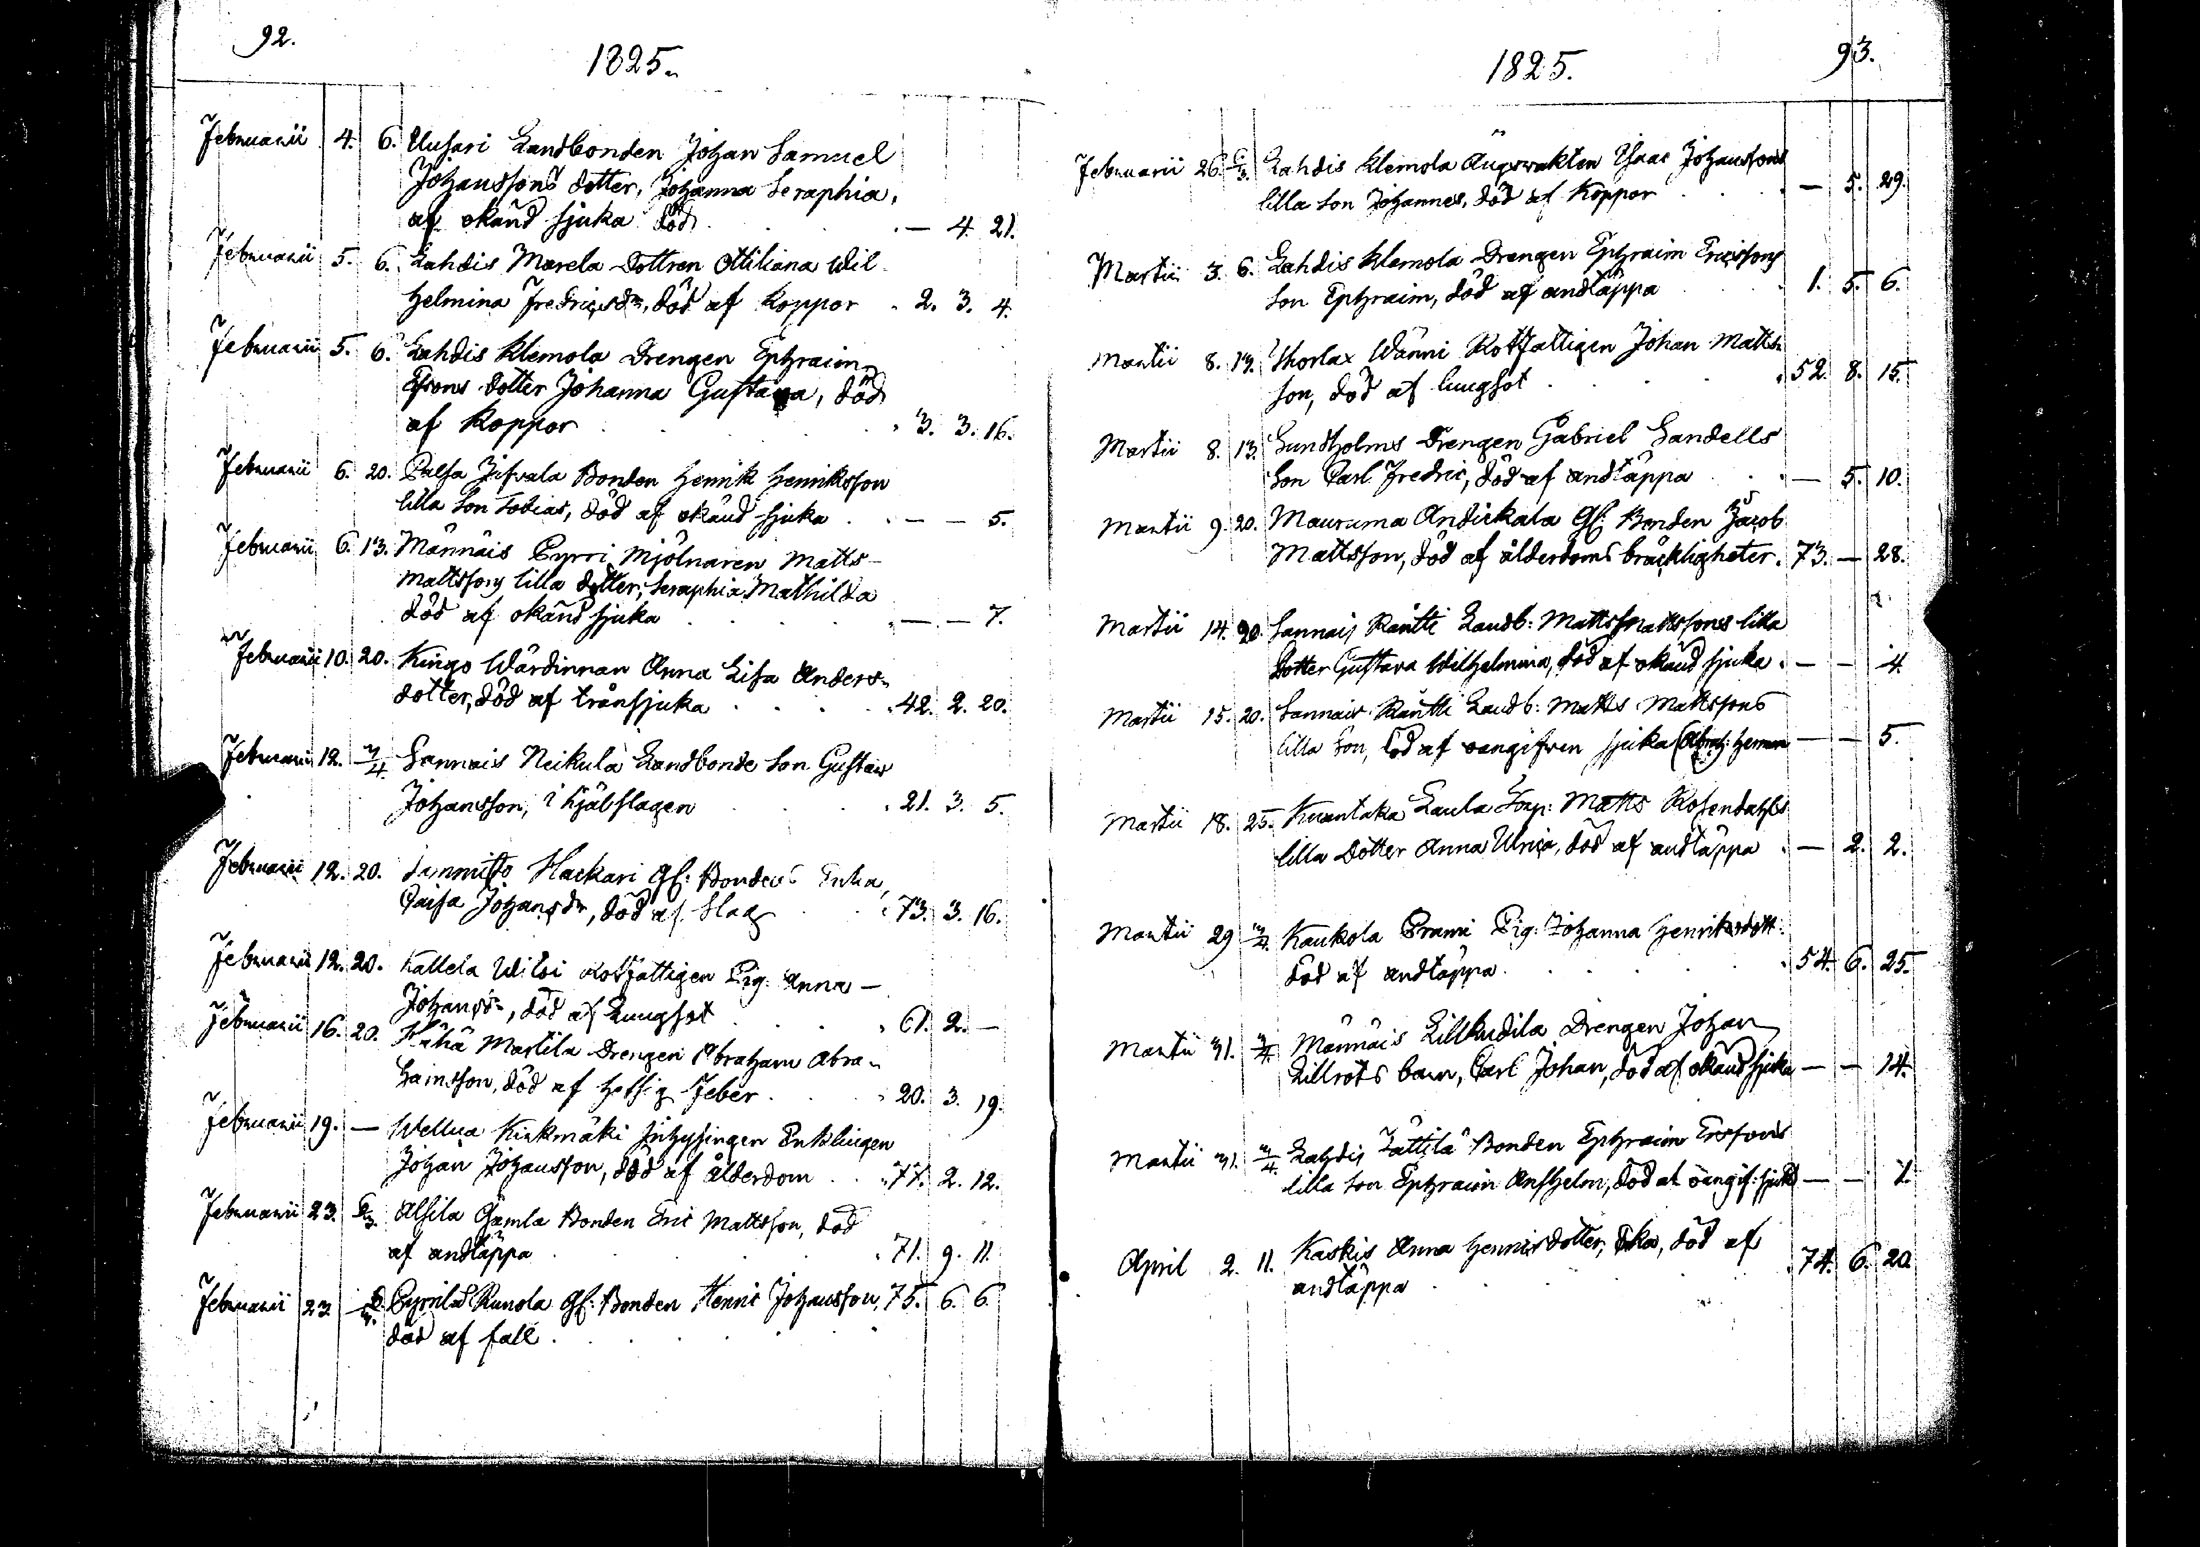 92.
1825.
Februarii 4. 6. Uusari Landbonden Johan Samuel
Johanssons dotter, Johanna Seraphia,
af okänd sjuka död — 4. 21.
Februarii 5. 6. Lahdis Marela Dottren Ottiliana Wil-
helmina Fredricsdr, död af Koppor 2. 3. 4.
Februarii 5. 6. Lahdis Klemola Drengen Ephraim
Ersons dotter Johanna Gustava, död
af Koppor 3. 3. 16.
Februarii 6. 20. Bonden Henrik Henriksson
lilla Son Tobias, död af okänd sjuka — — 5.
Februarii 6. 13. Männäis Pyrri Mjölnaren Matts
Mattssons lilla dotter, Seraphia Mathilda
död af okänd sjuka — — 7.
Februarii 10. 20. Kingo Wärdinnan Anna Lisa Anders-
dotter, död af trånsjuka 42. 2. 20.
Februarii 12. 3/4 Sannais Neikula Landbonde Son Gustav
Johansson, ihjälslagen 21. 3. 5.
Februarii 12. 20. Hackari Gl: Bondens Enka,
Caisa Johansdr, död af Slag 73. 3. 16.
Februarii 12. 20. Kallela Wilvi Rotfattigen Pig. Anna
Johansdr, död af Lungsot 61. 2. —
Februarii 16. 20. Kähä Martila Drengen Abraham Abra-
hamsson, död af hetsig Feber 20. 3. 19.
Februarii 19. — Wellua Kirkmäki Inhysingen Enklingen
Johan Johansson, död af ålderdom 77. 2. 12.
Februarii 23. 6/3. Alsila Gamla Bonden Eric Mattsson, död
af andtäppa 71. 9. 11.
Februarii 23. 6/3. Runola Gl: Bonden Henric Johansson, 75. 6. 6.
död af fall
93.
1825.
Februarii 26. 6/3. Lahdis Klemola Ängsvakten Isaac Johanssons
lilla Son Johannes, död af Koppor — 5. 29.
Martii 3. 6. Lahdis Klemola Drengen Ephraim Ericssons
Son Ephraim, död af andtäppa 1. 5. 6.
Martii 8. 13. Thorlax Wänni Rotfattigen Johan Matts-
son, död af lungsot 52. 8. 15.
Martii 8. 13. Lundholms Drengen Gabriel Sandells
Son Carl Fredric, död af andtäppa — 5. 10.
Martii 9. 20. Mauruma Andickala Gl: Bonden Jacob
Mattsson, död af ålderdoms bräckligheter. 73. — 28.
Martii 14. 20. Sannais Räntti Landb: Matts Mattssons lilla
Dotter Gustava Wilhelmina, död af okänd sjuka. — — 4
Martii 15. 20. Sannais Räntti Landb: Matts Mattssons
lilla Son, död af oangifven sjuka (Abrah: Herman — — 5.
Martii 18. 25. Kuantaka Laula Torp: Matts Rosendahls
lilla Dotter Anna Ulrica, död af andtäppa — 2. 2.
Martii 29 3/4. Kaukola Prami Pig. Johanna Henriksdott:
död af andtäppa 54. 6. 25.
Martii 31. 3/4. Männäis Lillkudila Drengen Johan
Lillrots barn, Carl Johan, död af okänd sjuka — — 14.
Martii 31. 3/4. Lahdis Tättilä Bonden Ephraim Erssons
lilla Son Ephraim Anshelm, död af oangif: sjuka — — 1.
April 2. 11. Kaskis Anna Henricsdotter, Eka, död af
andtäppa 74. 6. 20.